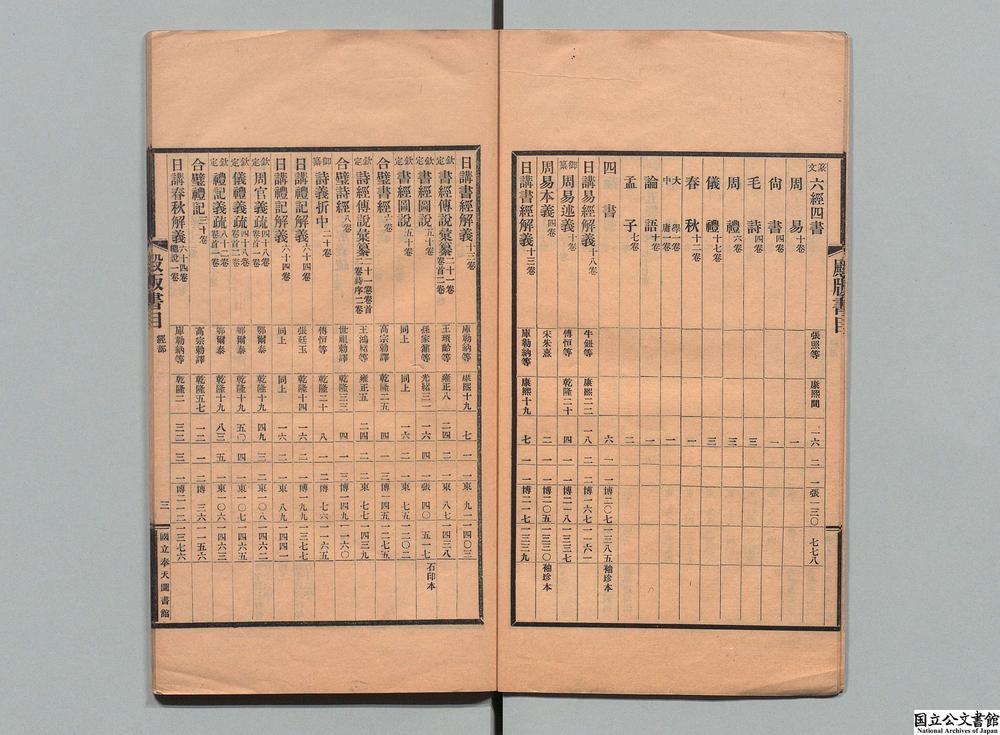 篆文六經四書 張照等 康熙間 一六 二 一張一三〇 七七八
周易十卷 一
尙書四卷 一
毛詩四卷 三
周禮六卷 三
儀禮十七卷 三
春秋十二卷 一
大學一卷 中庸一卷 一
論語十卷 一
孟子七卷 二
四書 六 一 一博二〇七 一三八五 袖珍本
日講易經解義十八卷 牛鈕等 康熙二二 一八 二 一博一六七 一一六一
御纂周易述義十卷 傅恒等 乾隆二十 四 一 一博二一八 一三三七
周易本義四卷 宋朱熹 二 一 一博二〇五 一三三〇 袖珍本
日講書經解義十三卷 庫勒納等 康熙十九 七 一 一博二一七 一三三九
殿版書目
日講書經解義十三卷 庫勒納等 康熙十九 七 一 一東 九一 一四〇三
欽定書經傳說彙纂二十一卷卷首二卷 王頊齡等 雍正八 二四 二 一東 八七 一四三八
欽定書經圖說五十卷 孫家鼐等 光緒三一 一六 四 一張 四〇 五一七 石印本
欽定書經圖說五十卷 同上 同上 一六 二 一東 七五 一二〇二
合璧書經六卷 高宗勅譯 乾隆二五 四 一 三博一四五 一二七五
欽定詩經傳說彙纂二十一卷卷首二卷詩序二卷 王鴻緖等 雍正五 二四 二 一東 七七 一四三九
合璧詩經八卷 世祖勅譯 乾隆三三 四 一 三博一四九 一一六〇
御纂詩義折中二十卷 傅恒等 乾隆二十 八 一 二博 七六 一一六五
日講禮記解義六十四卷 張廷玉 乾隆十四 一六 二 一博一九九 一三七七
日講禮記解義六十四卷 同上 同上 一六 二 一東 八九 一四四一
欽定周官義疏四十八卷卷首一卷 鄂爾泰 乾隆十九 四九 三 二東一〇八 一四六二
欽定儀禮義疏四十八卷卷首二卷 鄂爾泰 乾隆十九 五〇 四 一東一〇七 一四六五
欽定禮記義疏八十二卷卷首一卷 鄂爾泰 乾隆十九 八三 五 一東一〇六 一四六三
合璧禮記三十卷 高宗勅譯 乾隆五七 一二 一 二博 三六 一一五六
日講春秋解義六十四卷總說一卷 庫勒納等 乾隆二 三二 三 一博二一二 一三七六
殿版書目 經部 三 國立奉天圖書館
国立公文書館
National Archives of Japan